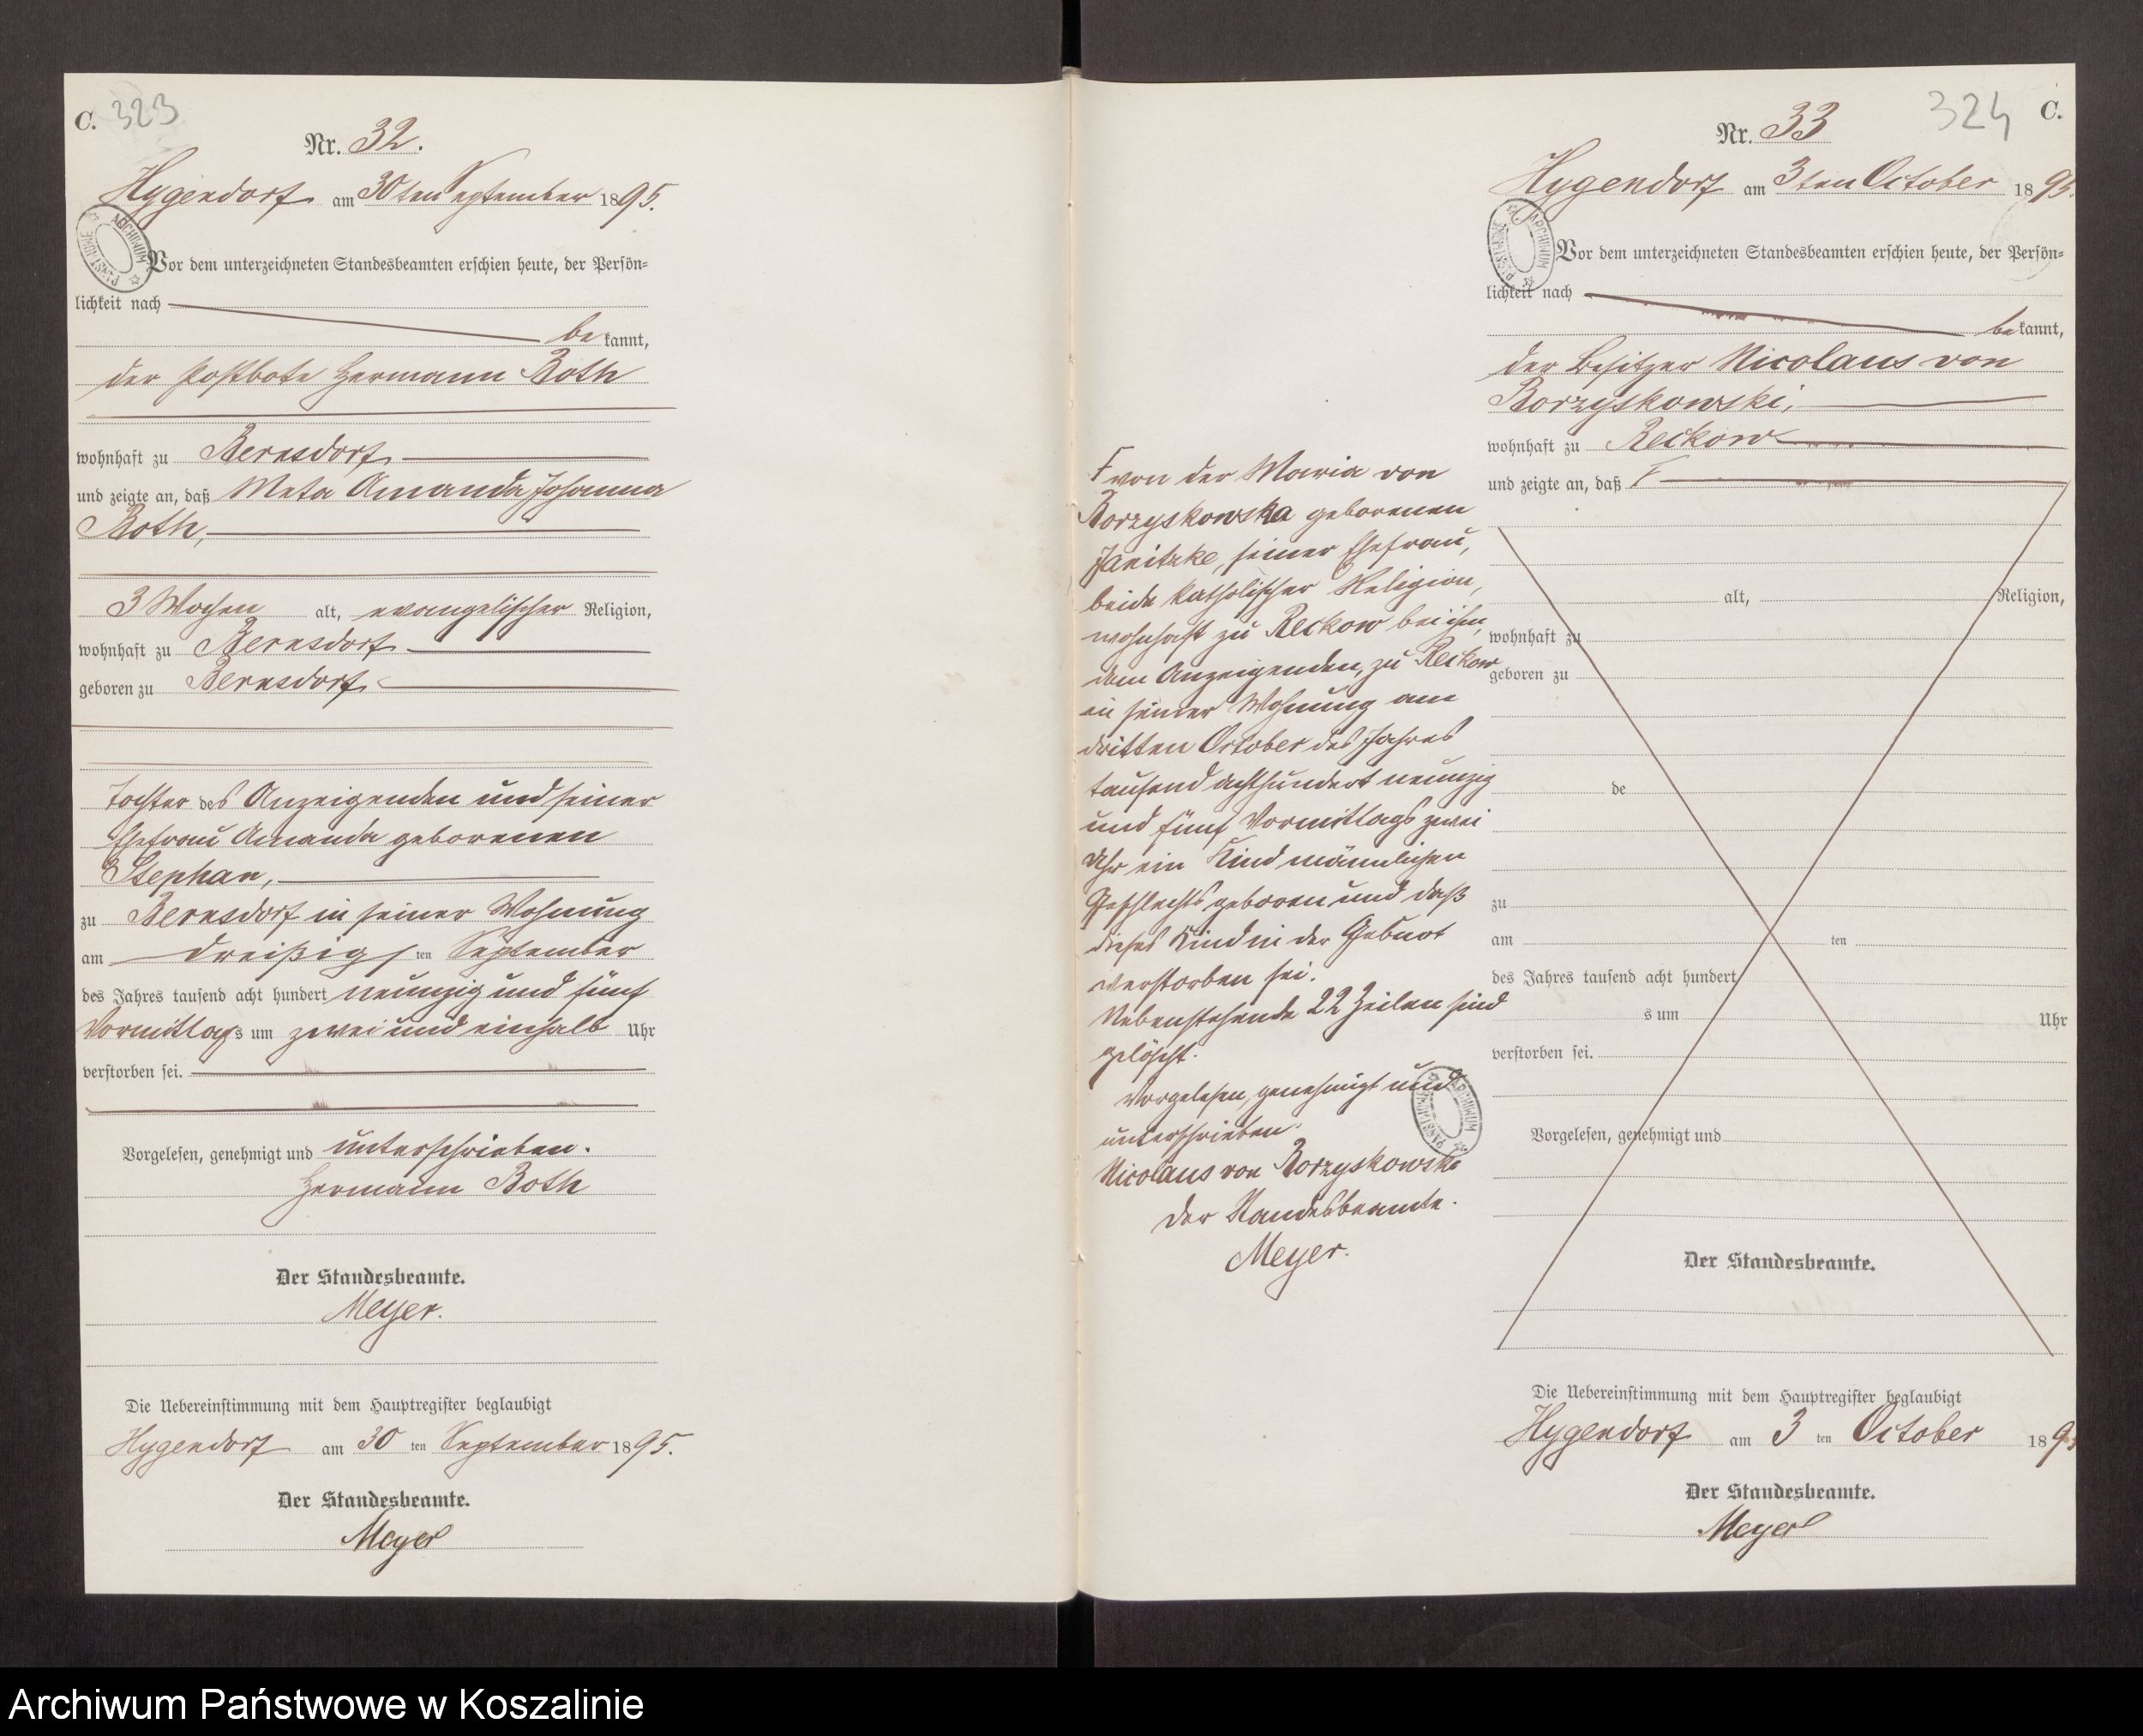 C. 323
Nr. 32.
Hygendorf am 30ten September 1895.
Vor dem unterzeichneten Standesbeamten erschien heute, der Persön=
lichkeit nach
be kannt,
der Postbote Hermann Roth
wohnhaft zu Bernsdorf
und zeigte an, daß Meta Amanda Johanna
Roth,
3 Wochen alt, evangelischer Religion,
wohnhaft zu Bernsdorf
geboren zu Bernsdorf
Tochter des Anzeigenden und seiner
Ehefrau Amanda geborenen
Stephan,
zu Bernsdorf in seiner Wohnung
am dreißigsten September
des Jahres tausend acht hundert neunzig und fünf
Vormittags um zwei und einhalb Uhr
verstorben sei.
Vorgelesen, genehmigt und unterschrieben.
Hermann Roth
Der Standesbeamte.
Meyer.
Die Uebereinstimmung mit dem Hauptregister beglaubigt
Hygendorf am 30 ten September 1895.
Der Standesbeamte.
Meyer
324 C.
Nr. 33
Hygendorf am 3ten October 1895.
Vor dem unterzeichneten Standesbeamten erschien heute, der Persön=
lichkeit nach
be kannt,
der Besitzer Nicolaus von
Borzyskowski,
wohnhaft zu Reckow
und zeigte an, daß F
F von der Maria von
Borzyskowska geborenen
Janitzke, seiner Ehefrau,
beide katholischer Religion,
wohnhaft zu Reckow bei ihm,
dem Anzeigenden, zu Reckow
in seiner Wohnung am
dritten October des Jahres
tausend achthundert neunzig
und fünf Vormittags zwei
Uhr ein Kind männlichen
Geschlechts geboren und daß
dieses Kind in der Geburt
verstorben sei.
Nebenstehende 22 Zeilen sind
gelöscht.
Vorgelesen, genehmigt und
unterschrieben.
Nicolaus von Borzyskowski
Der Standesbeamte.
Meyer.
alt, Religion,
wohnhaft zu
geboren zu
de
zu
am ten
des Jahres tausend acht hundert
s um Uhr
verstorben sei.
Vorgelesen, genehmigt und
Der Standesbeamte.
Die Uebereinstimmung mit dem Hauptregister beglaubigt
Hygendorf am 3 ten October 1895
Der Standesbeamte.
Meyer
ARCHIWUM PAŃSTWOWE
ARCHIWUM PAŃSTWOWE
ARCHIWUM PAŃSTWOWE
Archiwum Państwowe w Koszalinie